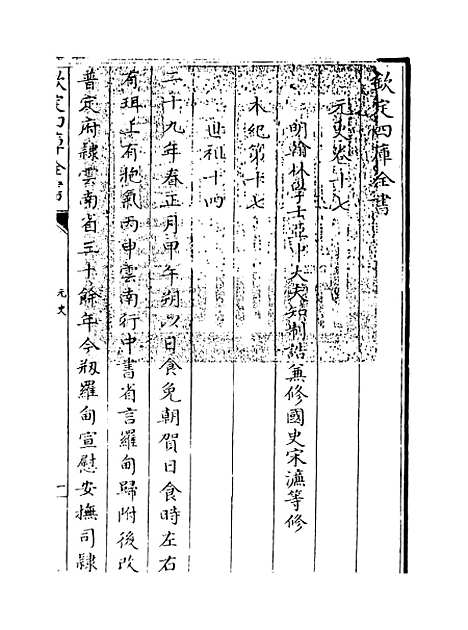 欽定四庫全書
元史卷十七
明翰林學士亞中大夫知制誥兼修國史宋濂等修
本紀第十七
世祖十四
二十九年春正月甲午朔以日食免朝賀日食時左右
有珥上有抱氣丙申雲南行中書省言羅甸歸附後改
普定府隸雲南省三十餘年今剏羅甸宣慰安撫司隸
欽定四庫全書
元史
一